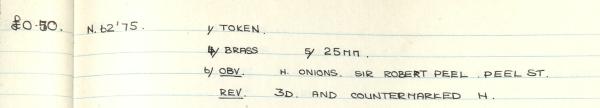 £0.50. N.62'75. 1/ TOKEN.
4/ BRASS 5/ 25mm.
6/ OBV. H. ONIONS. SIR ROBERT PEEL. PEEL ST.
REV. 3D. AND COUNTERMARKED H.